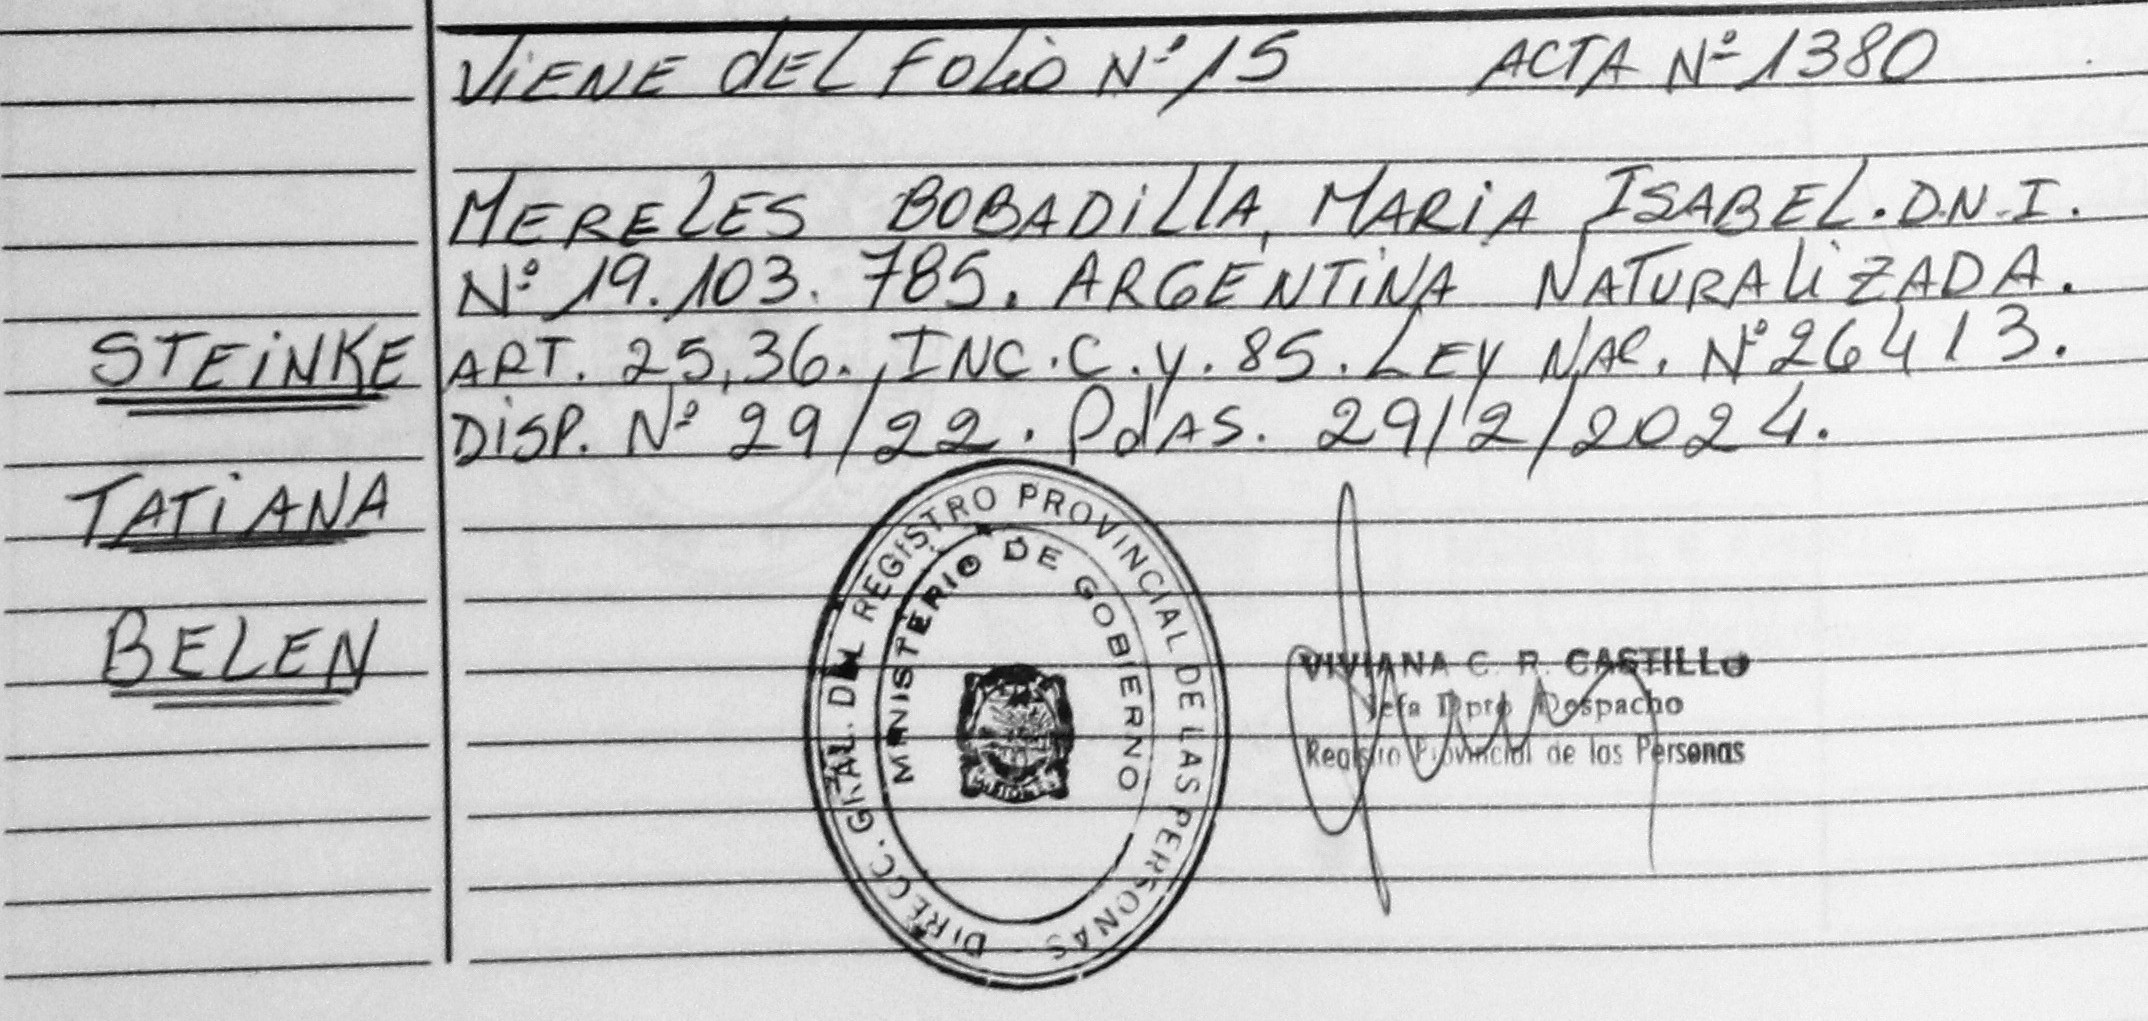 ViENE dEL FOLiO Nº 15 ACTA Nº 1380
MERELES BOBADiLLA, MARiA ISABEL. D.N.I.
Nº 19.103.785. ARGENTiNA NATURALiZADA.
STEiNKE
ART. 25,36., INC.C.y.85. LEY NAC. Nº 26413.
DiSP. Nº 29/22. PdAS. 29/2/2024.
TATiANA
BELEN
DIRECC. GRAL. DEL REGISTRO PROVINCIAL DE LAS PERSONAS
MINISTERIO DE GOBIERNO
VIVIANA C. R. CASTILLO
Jefa Dpto Despacho
Registro Provincial de las Personas